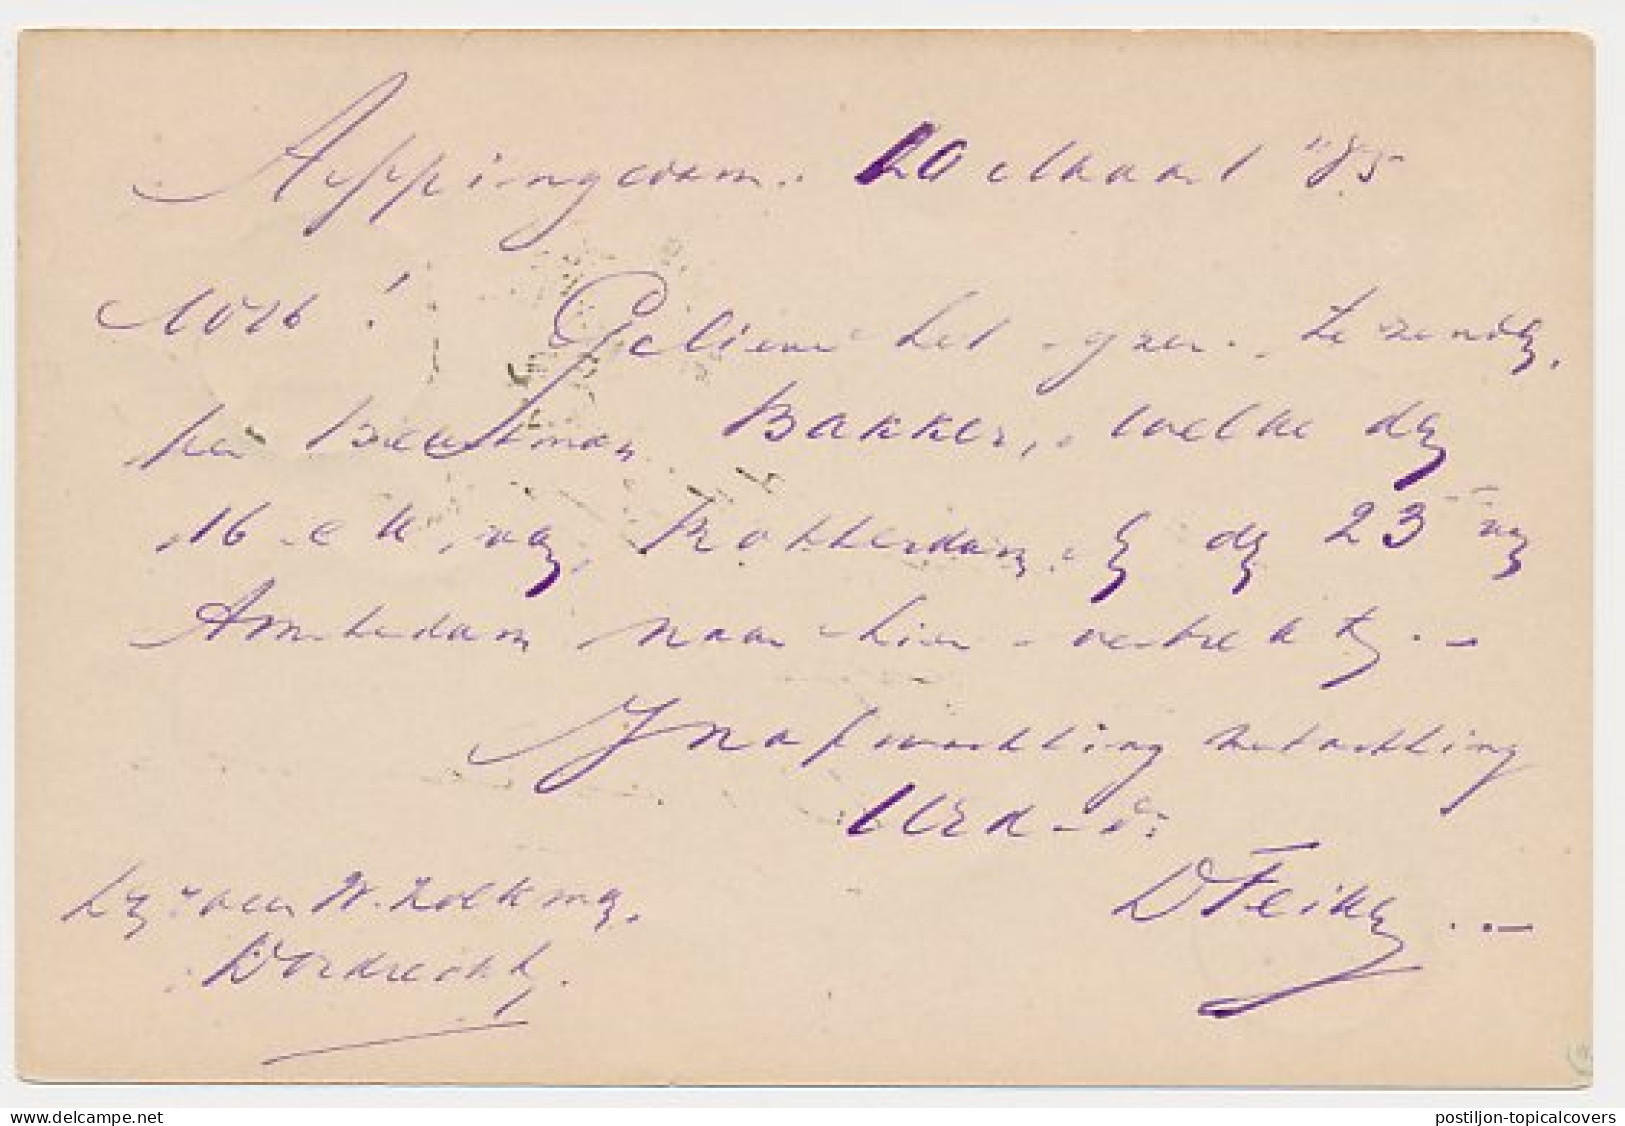 Appingedam. 20 Maart '85
Gelieve het ijzer te zenden
per Beurtman Bakker, welke den
16 e k. van Rotterdam en den 23 van
Amsterdam naar hier vertrekt. -
In afwachting hoogachting
UEd. dr.
D Feiken . . -
den heer W.
Dordrecht.
postiljon-topicalcovers